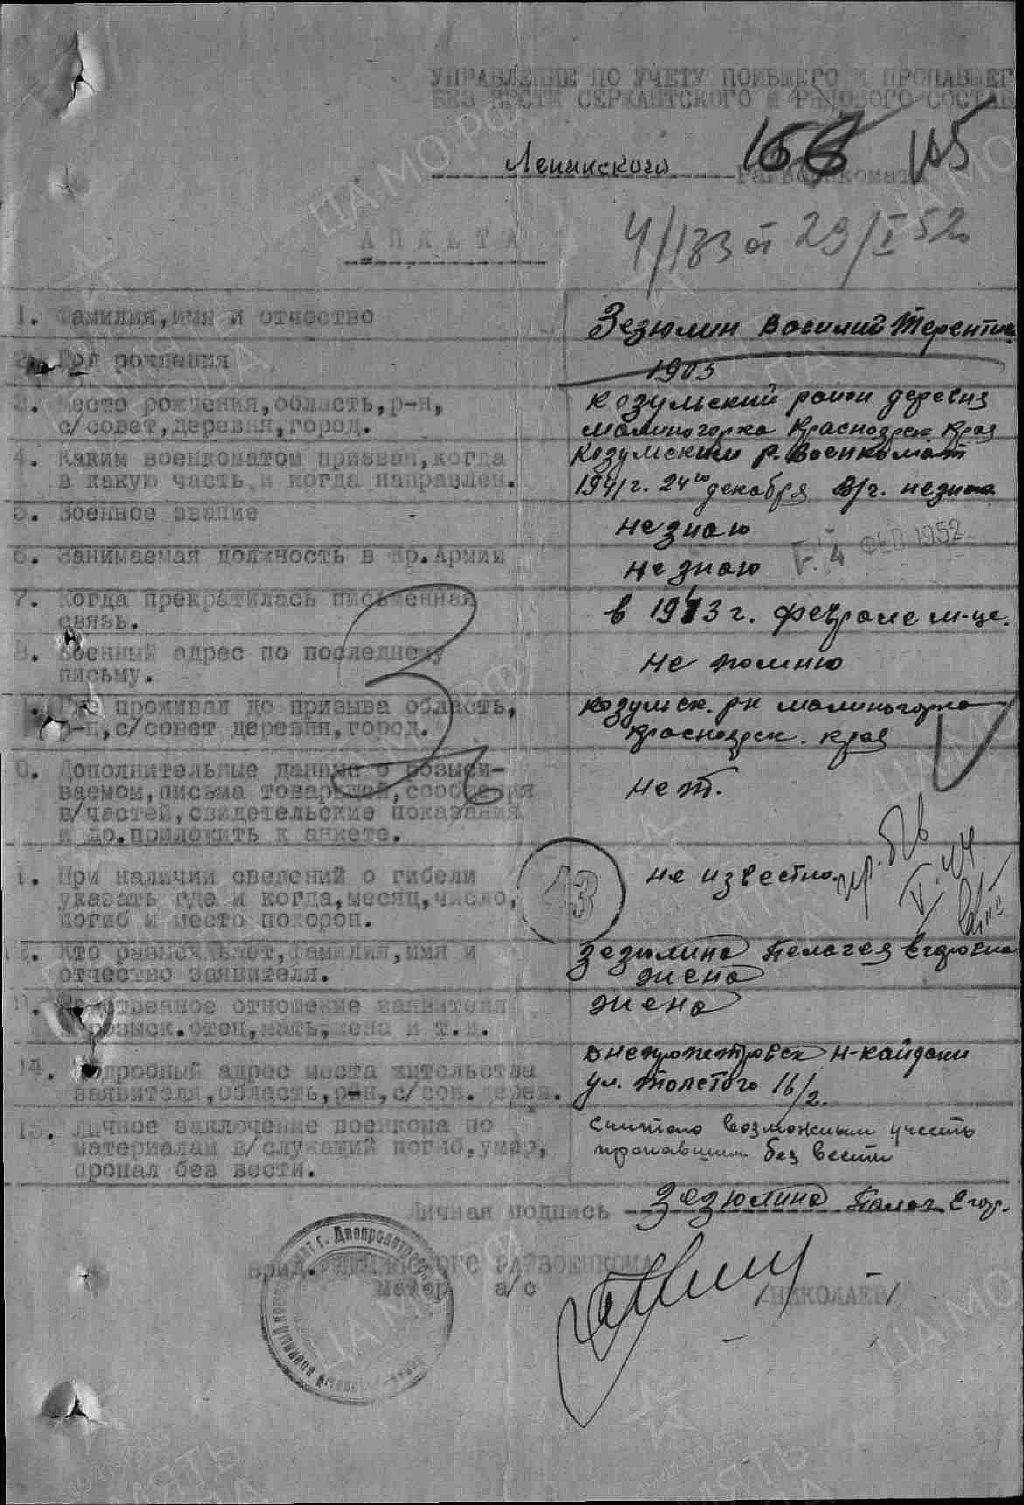 УПРАВЛЕНИЕ ПО УЧЕТУ ПОГИБШЕГО И ПРОПАВШЕГ
БЕЗ ВЕСТИ СЕРЖАНТСКОГО И РЯДОВОГО СОСТАВ
Ленинского Райвоенкомат
4/183 от 29/I 52
АНКЕТА
1. Фамилия, имя и отчество Зезюлин Василий Терентье
2. Год рождения 1903
3. Место рождения, область, р-н, Козульский район деревня
с/совет, деревня, город. малиногорка Красноярск. Края
4. Каким военкоматом призван, когда Козульским р. Военкомат
в какую часть и когда направлен. 1941 г. 24го декабря в/ч. незнаю
5. Военное звание не знаю
6. Занимаемая должность в Кр.Армии не знаю
ФЕВ 1952
7. Когда прекратилась письменная
связь. в 1943 г. феврале м-це.
8. Военный адрес по последнему
письму. не помню
Где проживал до призыва область, козульск. рн малиногорка
р-н, с/совет деревня, город. красноярск. края
0. Дополнительные данные о розыси-
ваемом, письма товарищей, сообщения нет.
в/частей, свидетельские показания
и др. приложить к анкете.
1. При наличии сведений о гибели не известно.
указать где и когда, месяц, число,
погиб и место похорон.
43
Кто разыскивает, фамилия, имя и Зезюлина Пелагея Егоровна
отчество заявителя. жена
Родственное отношение заявителя жена
к розыск. отец, мать, жена и т.п.
14. Подробный адрес места жительства Днепропетровск Н-Кайдаки
заявителя, область, р-н, с/сов. дерев. ул. Толстого 16/2.
15. Личное заключение военкома по Считаю возможным учесть
материалам в/служащий погиб, умер, пропавшим без вести
пропал без вести.
Личная подпись Зезюлина Пелаг Егор.
ВРИД. ЛЕНИНСКОГО РАЙВОЕНКОМА
майор а/с /НИКОЛАЕВ/